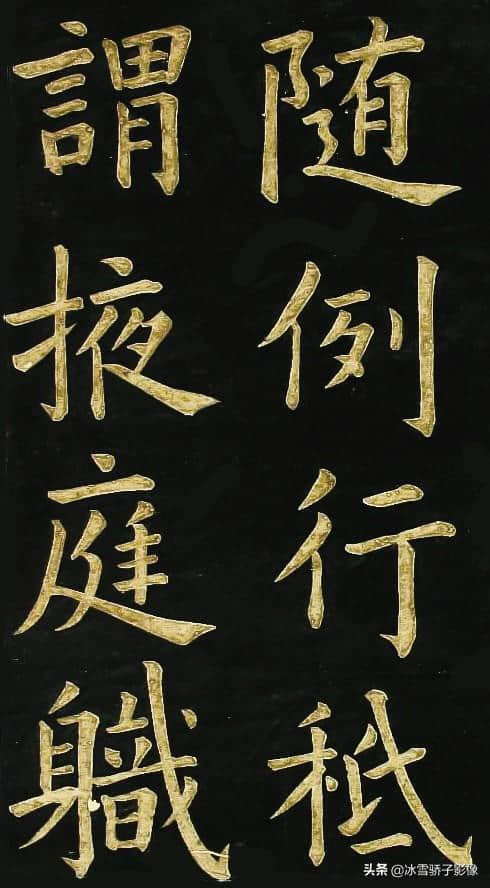 随例行秪
謂掖庭軄
头条 @冰雪骄子影像